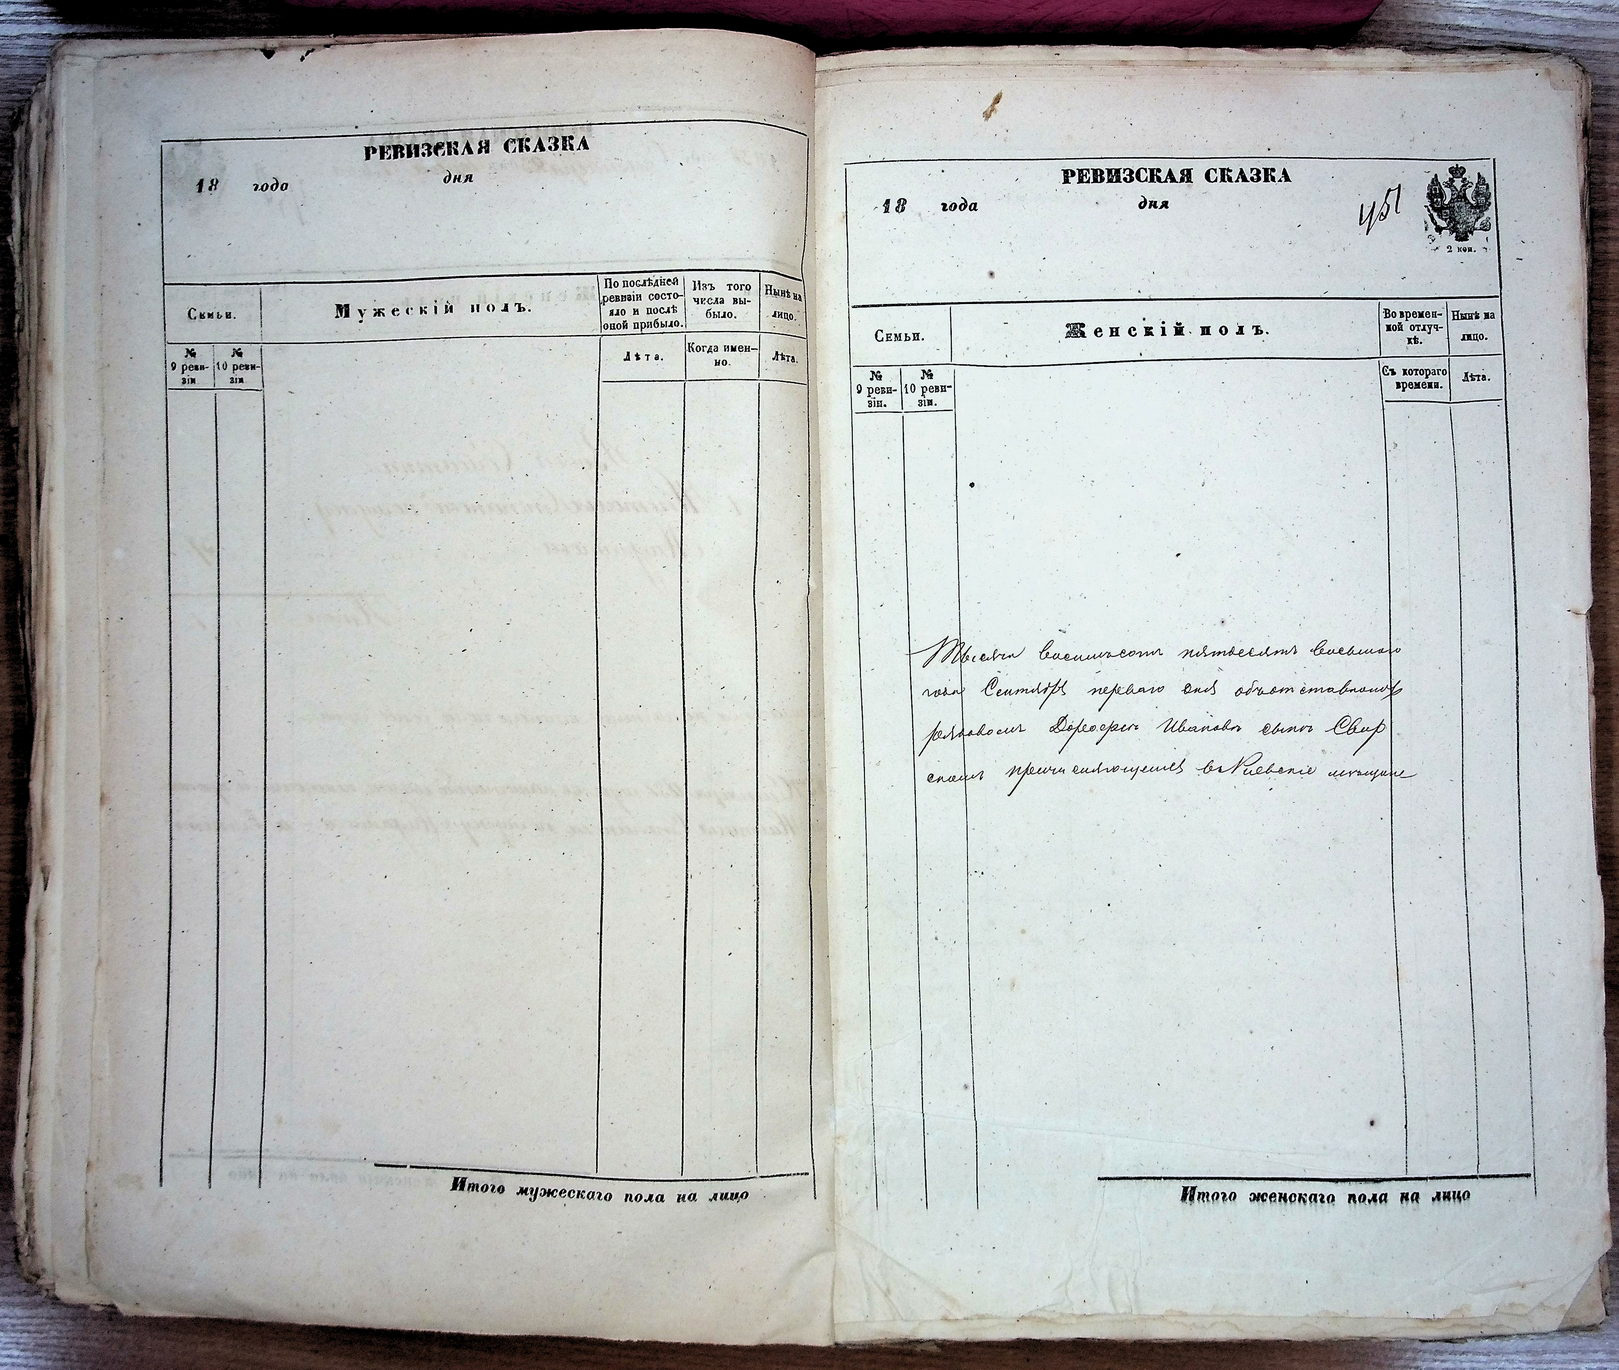 РЕВИЗСКАЯ СКАЗКА
18 года дня
Семьи.
Мужескій полъ.
По послѣдней ревизіи состояло и послѣ оной прибыло.
Изъ того числа выбыло.
Нынѣ на лицо.
№ 9 ревизіи
№ 10 ревизіи
Лѣта.
Когда именно.
Лѣта.
Итого мужескаго пола на лицо
РЕВИЗСКАЯ СКАЗКА
18 года дня
451
2 коп.
Семьи.
Женскій полъ.
Во временной отлучкѣ.
Нынѣ на лицо.
№ 9 ревизіи.
№ 10 ревизіи.
Съ котораго времени.
Лѣта.
Тысяча восемьсотъ пятьдесятъ восьмаго
года Сентября перваго дня объ отставномъ
рядовомъ Дорофеѣ Ивановѣ сынѣ Свир
скомъ причисляющемся въ Кіевскіе мѣщане
Итого женскаго пола на лицо